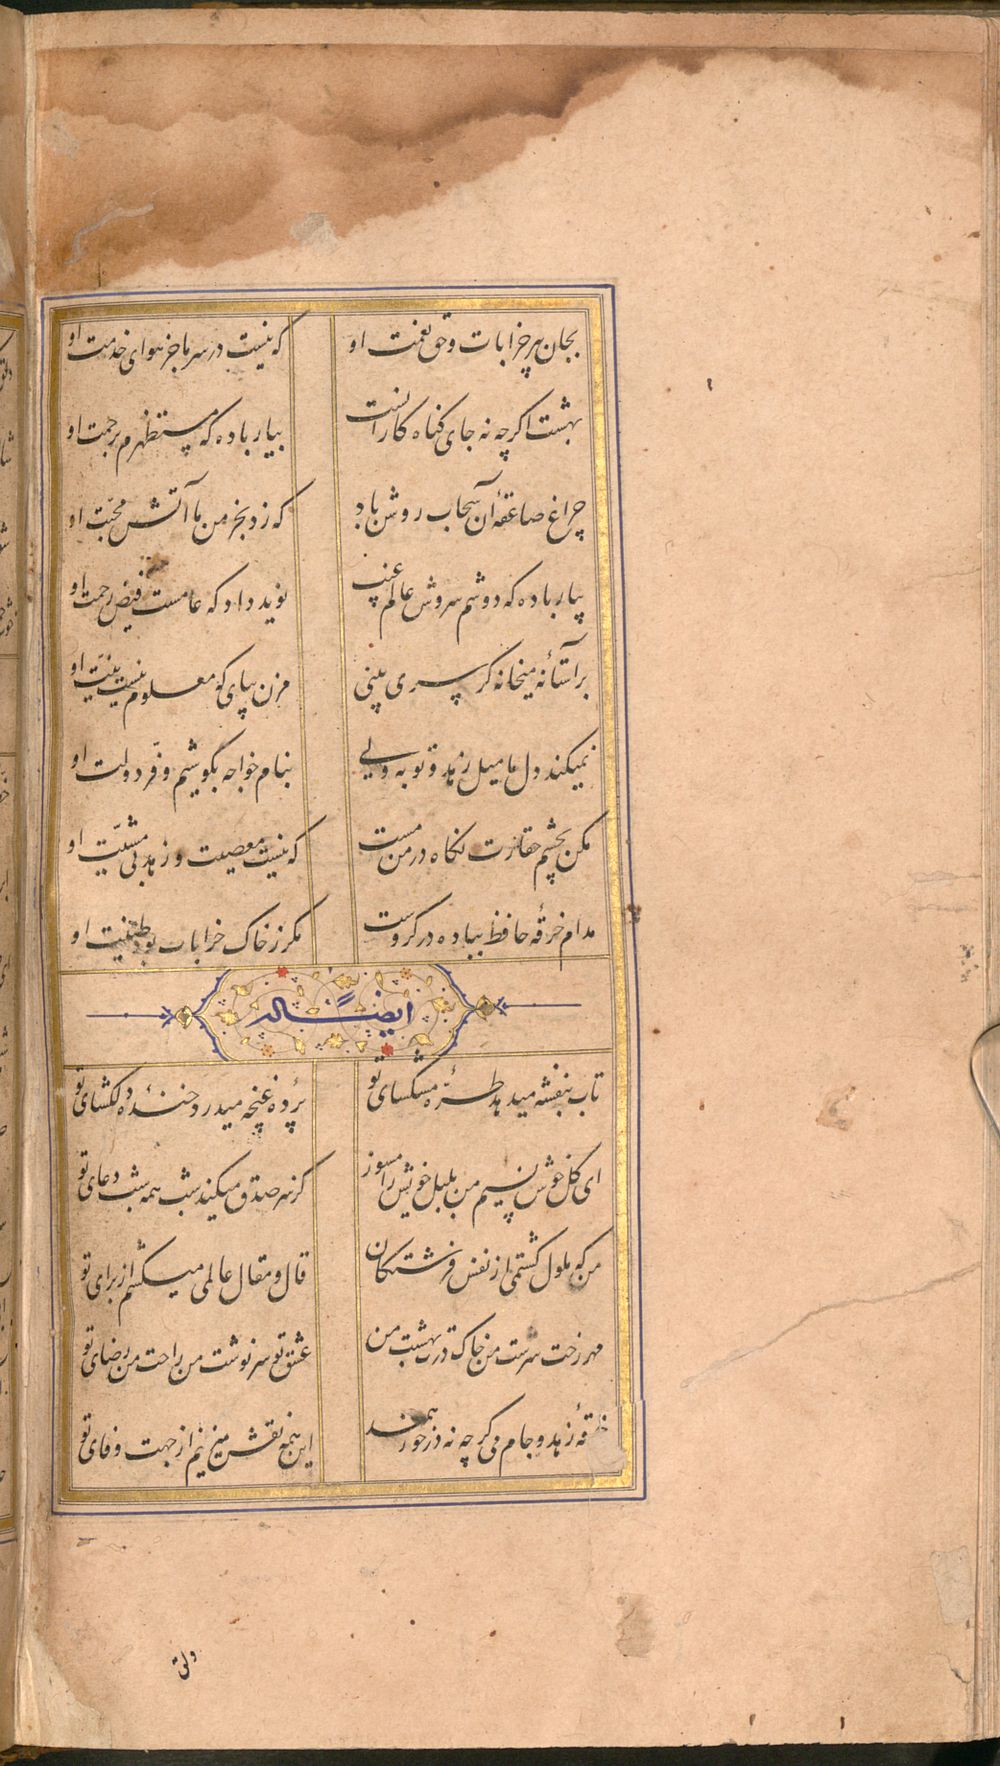 بجان پیر خرابات و حق نعمت او که نیست در سر ما جز هوای خدمت او
بهشت اکرچه نه جای کناه کارانست بیار باده که مستظهرم برحمت او
چراغ صاعقهٔ آن سحاب روشن باد که زد بخرمن ما آتش محبّت او
بیار باده که دوشم سروش عالم غیب نوید داد که عامست فیض رحمت او
بر آستانهٔ میخانه کر سری بینی مزن بپای که معلوم نیست نیّت او
نمیکند دل ما میل زهد و توبه ولی بنام خواجه بکوشیم و فرّ دولت او
مکن بچشم حقارت نکاه در من مست که نیست معصیت و زهد بی مشیّت او
مدام خرقهٔ حافظ بباده در کروست مکر ز خاک خرابات بود طینت او
ایضاً له
تاب بنفشه میدهد طرّهٔ مشکسای تو پردهٔ غنچه میدرد خندهٔ دلکشای تو
ای کل خوش نسیم من بلبل خویش را مسوز کز سر صدق میکند شب همه شب دعای تو
من که ملول کشتمی از نفس فرشتکان قال و مقال عالمی میکشم از برای تو
مهر رخت سرشت من خاک درت بهشت من عشق تو سرنوشت من راحت من رضای تو
خرقهٔ زهد و جام می کرچه نه در خور همند این همه نقش میزنم از جهت وفای تو